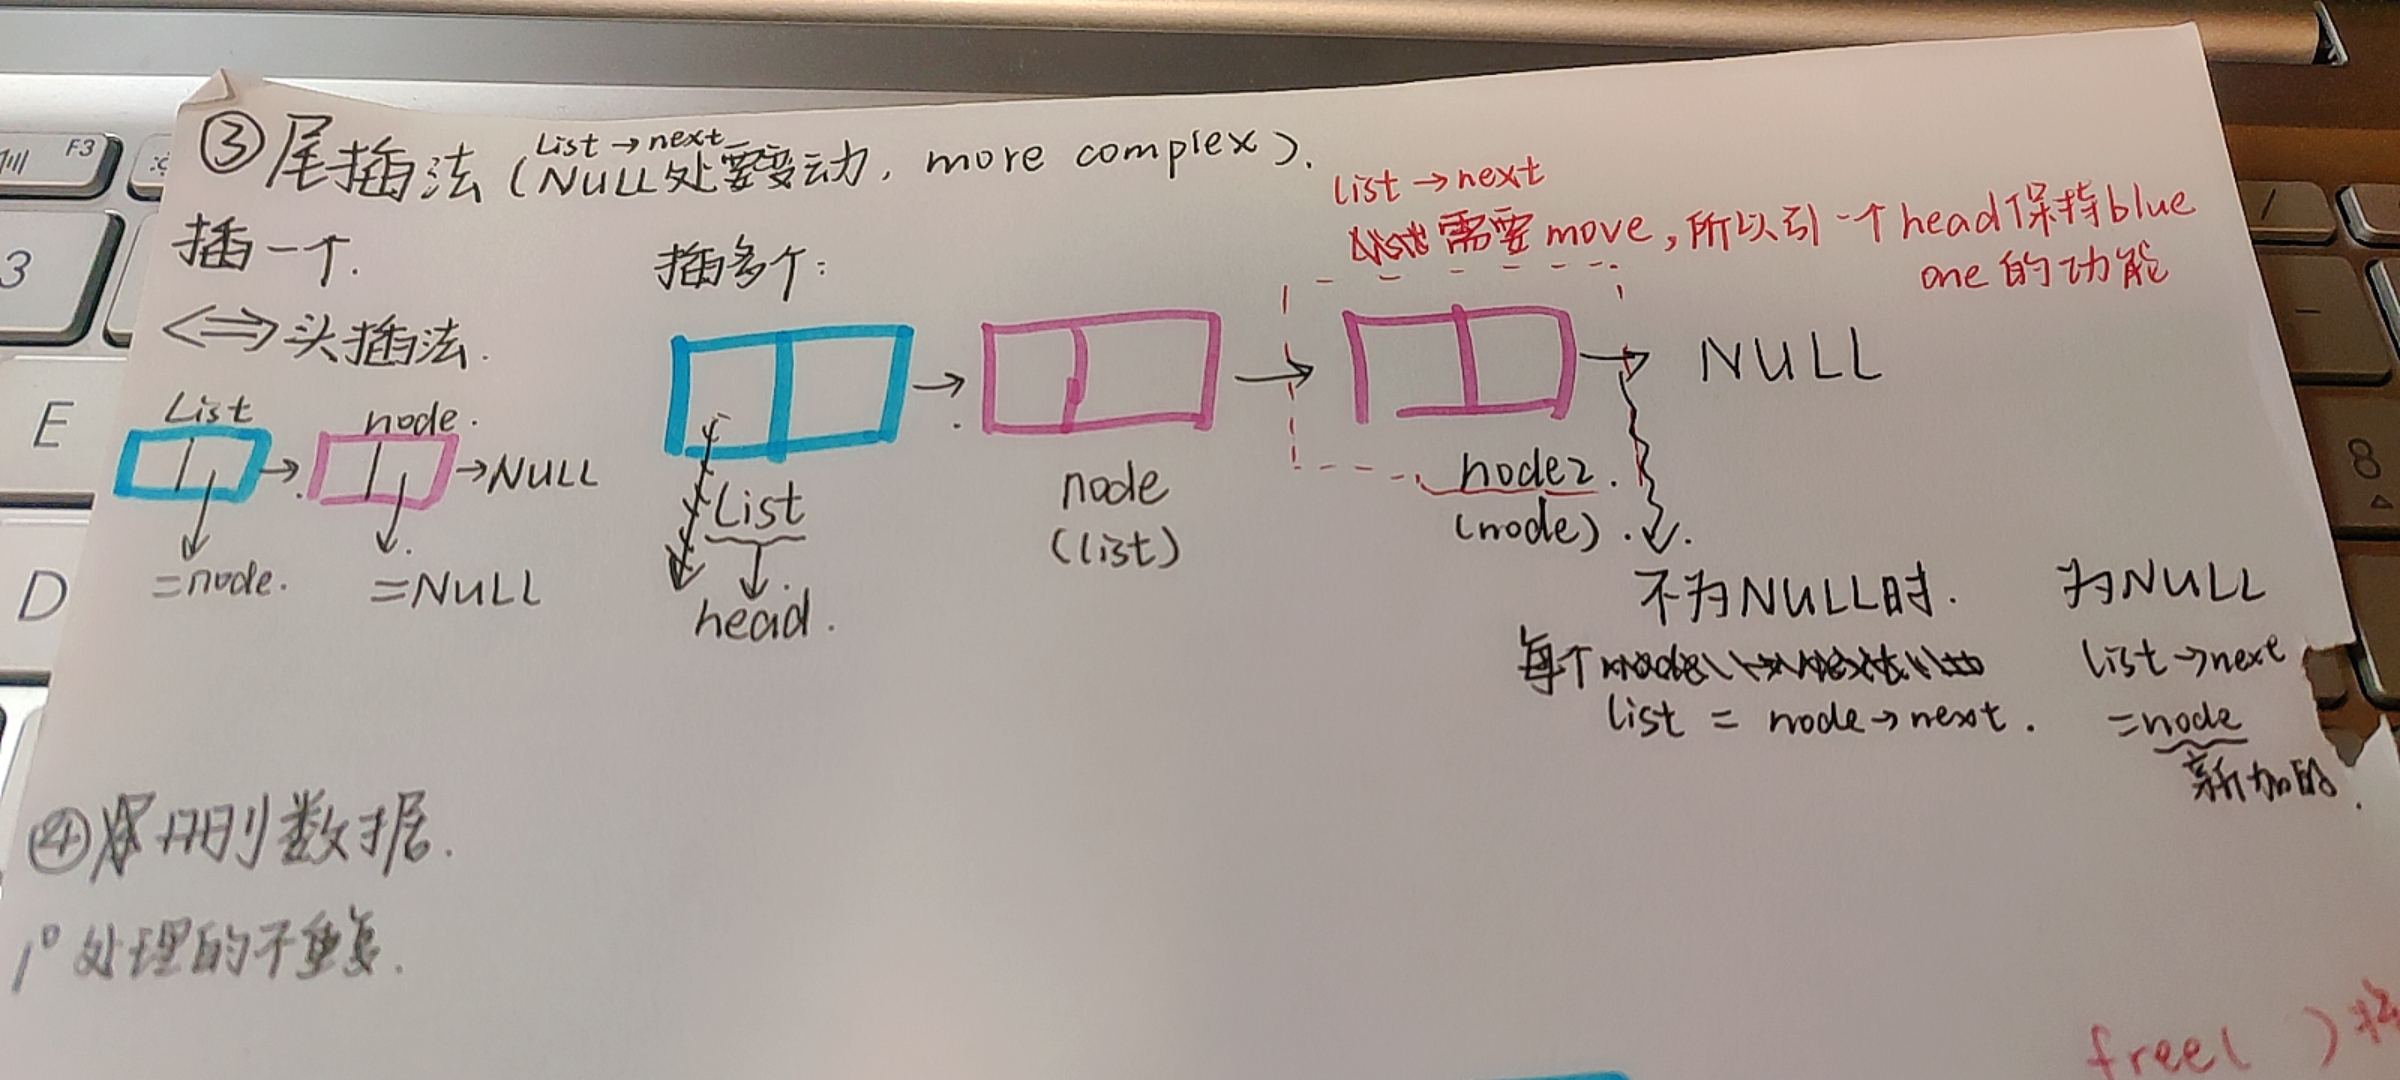 ③尾插法(NULL处需要变动, more complex).
List→next
插一个.
⟺头插法.
List node.
→ →NULL
=node. =NULL
插多个:
list→next
需要move,所以引一个head保持blue
one的功能
→ → → NULL
List
head.
node
(list)
node2.
(node).
不为NULL时. 为NULL
每个 list→next
list = node→next. =node
新加的.
④删数据.
1° 处理的不重复.
free( )
F3
3
E
D
/
8